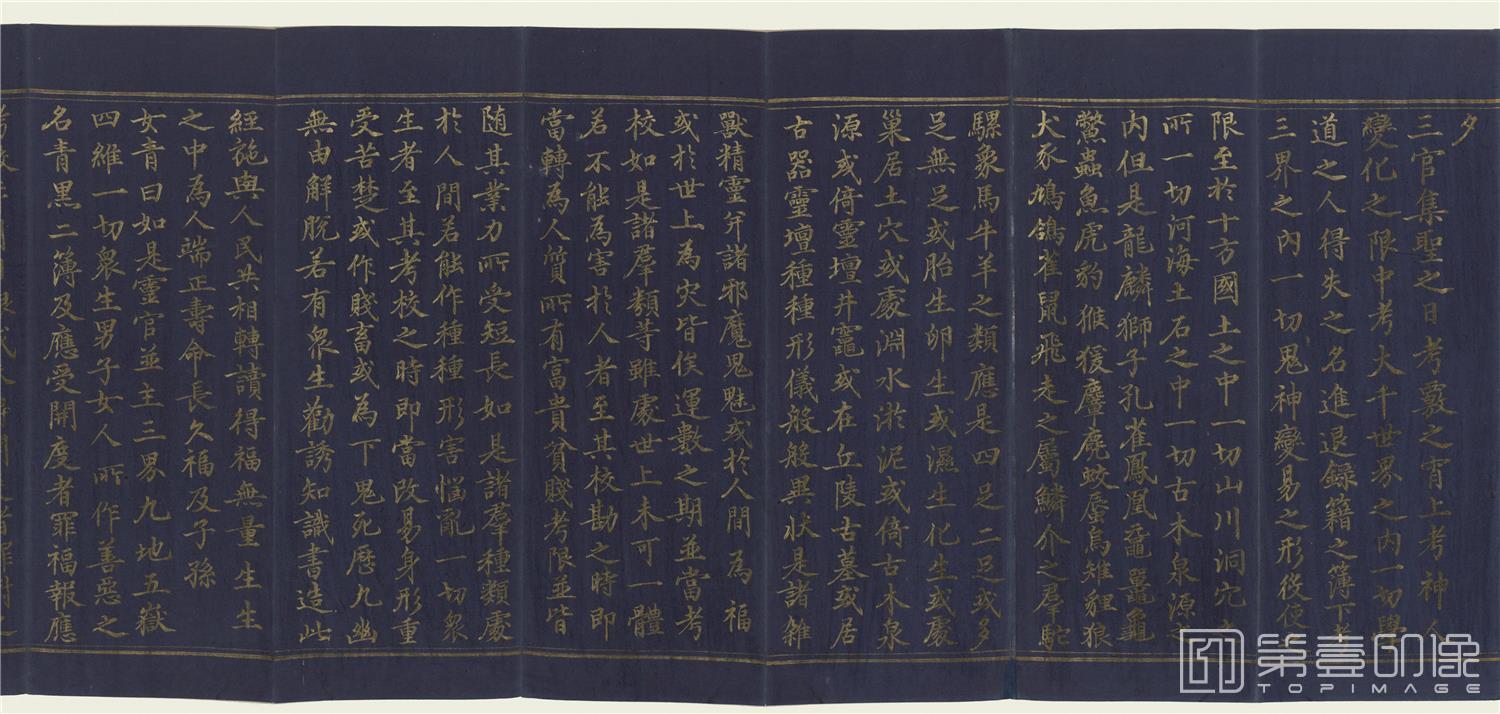 夕
三官集聖之日考覈之宵上考神人
變化之限中考大千世界之內一切學
道之人得失之名進退錄籍之簿下考
三界之內一切鬼神變易之形役使之
限至於十方國土之中一切山川洞穴之
所一切河海土石之中一切古木泉源之
內但是龍麟獅子孔雀鳳凰黿鼉龜
鱉蟲魚虎豹猴猨麞麂蛟蜃烏雉貍狼
犬豕鳩鴿雀鼠飛走之屬鱗介之群駝
騾象馬牛羊之類應是四足二足或多
足無足或胎生卵生或濕生化生或處
巢居土穴或處淵水淤泥或倚古木泉
源或倚靈壇井竈或在丘陵古墓或居
古器靈壇種種形儀般般異狀是諸雜
獸精靈并諸邪魔鬼魅或於人間為福
或於世上為灾皆俟運數之期並當考
校如是諸羣類等雖處世上未可一體
若不能為害於人者至其校勘之時即
當轉為人質所有富貴貧賤考限並皆
随其業力所受短長如是諸羣種類處
於人間若能作種種形害惱亂一切衆
生者至其考校之時即當改易身形重
受苦楚或作賤畜或為下鬼死歷九幽
無由解脫若有衆生勸誘知識書造此
經施與人民共相轉讀得福無量生生
之中為人端正壽命長久福及子孫
女青曰如是靈官並主三界九地五嶽
四維一切衆生男子女人所作善惡之
名青黑二簿及應受開度者罪福報應
第壹印像
TOPIMAGE